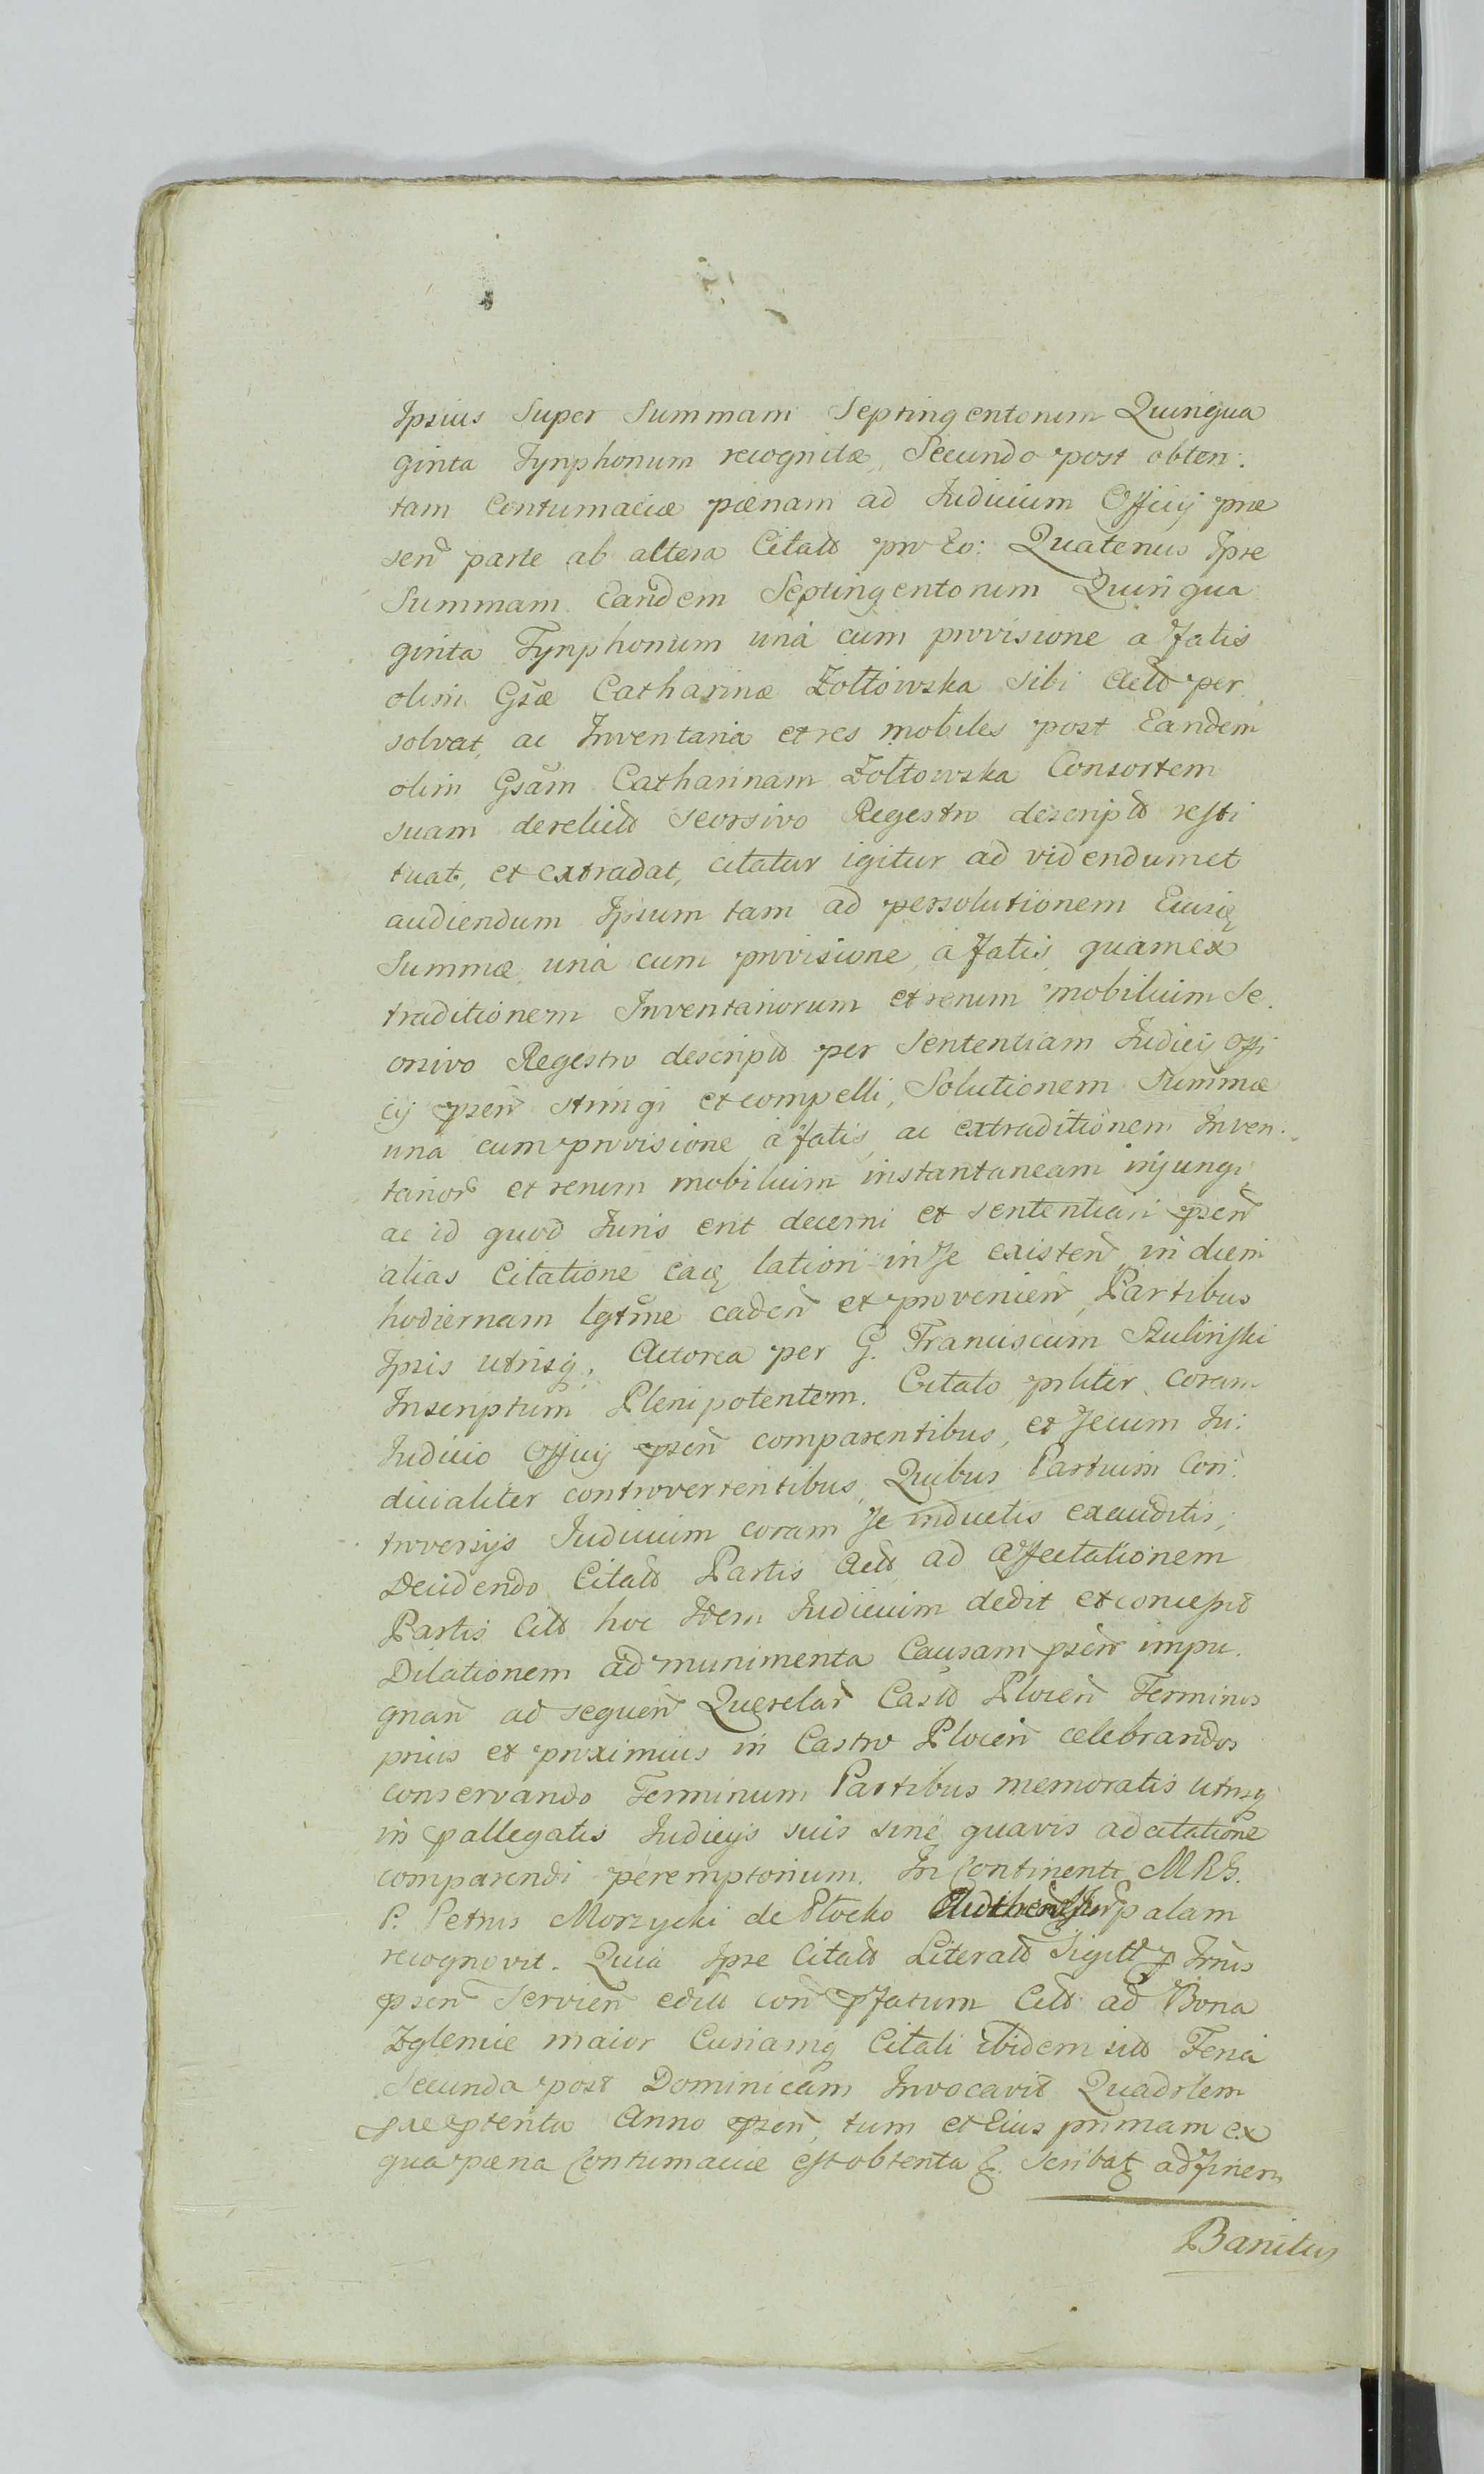 Ipsius Super Summam Septingentorum Quinqua
ginta Tynphonum recognitæ, Secundo post obten:
tam Contumaciæ pœnam ad Iudicium Officij præ
señ parte ab altera Citato pro Eo: Quatenus Ipse
Summam Eandem Septingentorum Quinqua
ginta Tynphonum unà cum provisione a fatis
olim Gsæ Catharinæ Zołtowska sibi Acto per
solvat, ac Inventaria et res mobiles post Eandem
olim Gsam Catharinam Zołtowska Consortem
suam derelicto seorsivo Regestro descripto resti
tuat, et extradat, citatur igitur ad videndum et
audiendum Ipsum tam ad persolutionem Eiusq
Summæ unà cum provisione à fatis quam ex
traditionem Inventariorum et rerum mobilium Se
orsivo Regestro descripto per Sententiam Iudicij Offi
cij pseñ stringi et compelli, Solutionem Summæ
una cum provisione à fatis, ac extraditionem Inven:
tarior et rerum mobilium instantaneam injungi,
ac id quod Iuris erit decerni et sententiari pseñ
alias Citatione eaq latiori in se existeñ in diem
hodiernam lgtme cadeñ et provenieñ, Partibus
Ipsis utrisq, Actorea per G. Franciscum Szulinski
Inscriptum Plenipotentem. Citato prliter coram
Iudicio Officij pseñ comparentibus, et secum Iu:
dicialiter controvertentibus, Quibus Partium Con:
troversijs Iudicium coram se inductis exauditis,
Decidendo Citato Partis Acto ad affectationem
Partis Cito hoc Idem Iudicium dedit et concessit
Dilationem ad munimenta Causam pseñ impu:
gnañ ad sequeñ Querelar Casto Ploceñ Terminos
prius et proximius in Castro Ploceñ celebrandos
conservando Terminum Partibus memoratis utrisq
in pallegatis Iudicijs suis sine quavis adcitatione
comparendi peremptorium. In Continenti MRG.
P. Petrus Morzycki de Płocko palam
recognovit. Quia Ipse Citato Literato Sigill
pseñ Servieñ edito coñ pfatum Cito ad Bona
Zglenie maior Curiamq Citati ibidem sito Feria
Secunda post Dominicam Invocavit Quadrlem
præptenta Anno pseñ, tum et Eius primam ex
qua pœna Contumaciæ est obtenta &. scribat ad finem
Banitus